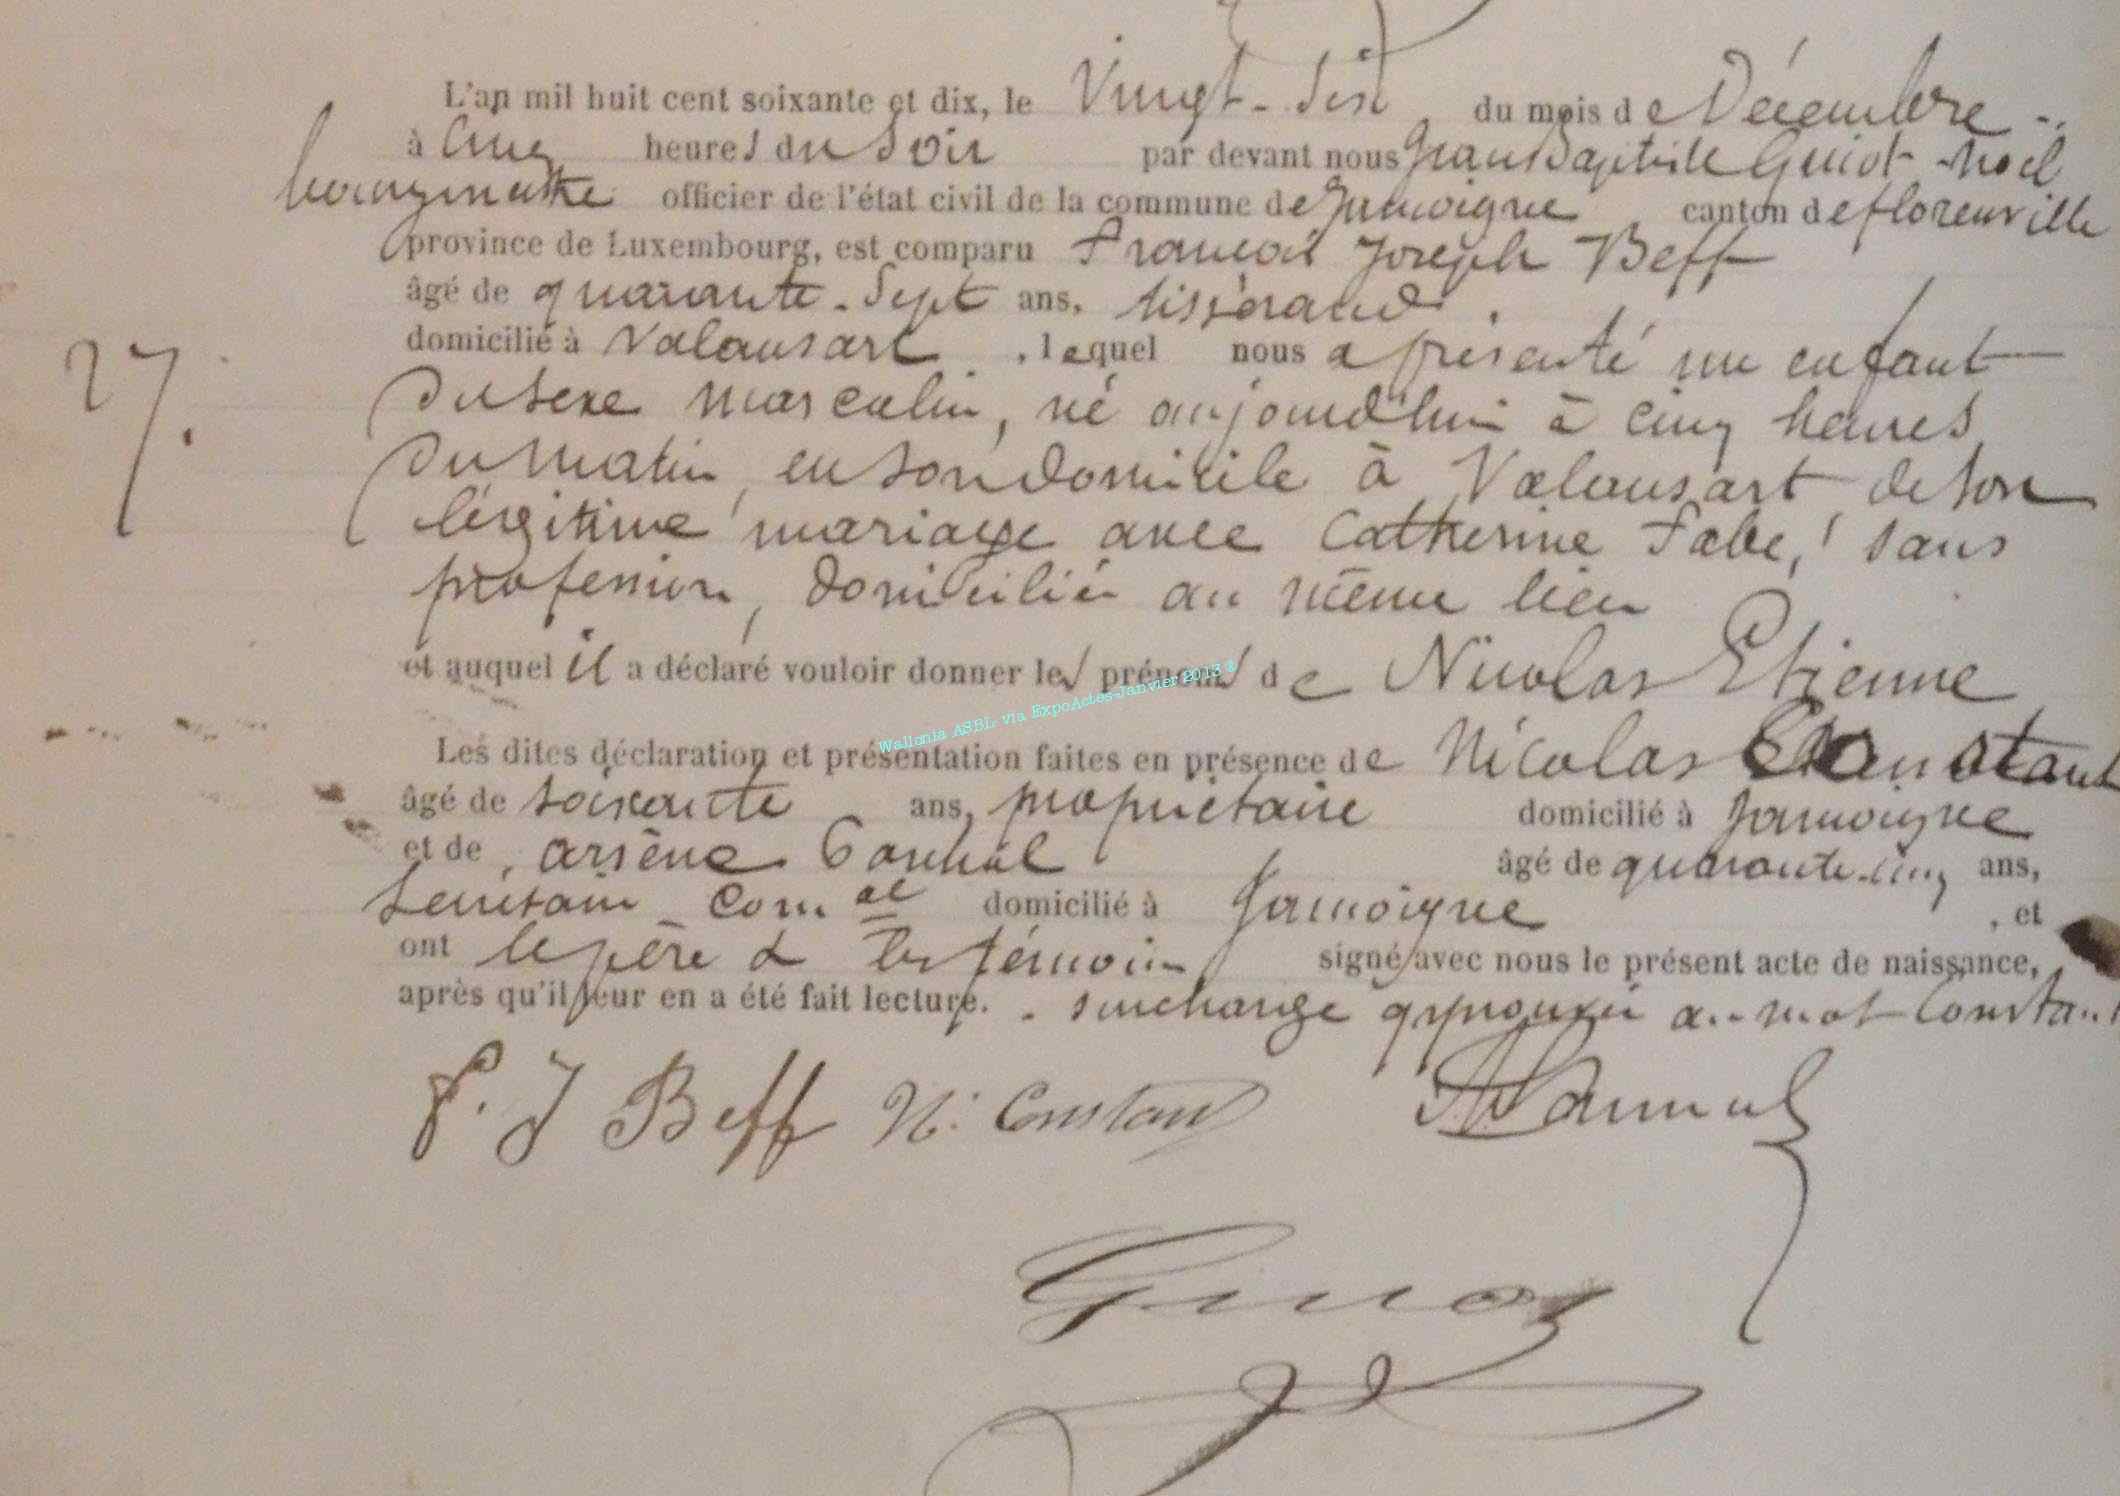 L'an mil huit cent soixante et dix, le Vingt-Six du mois de Décembre
à Cinq heures du Soir par devant nous Jean Baptiste Guiot-Noël
bourgmestre officier de l'état civil de la commune de Jamoigne canton de florenville
province de Luxembourg, est comparu François Joseph Beff
âgé de quarante-Sept ans, tisserand
domicilié à Valansart, lequel nous a présenté un enfant
27.
du sexe masculin, né aujourd'hui à cinq heures
du matin, en son domicile à Valansart, de son
légitime mariage avec Catherine Fabe, sans
profession, domiciliée au même lieu
et auquel il a déclaré vouloir donner les prénoms de Nicolas Etienne
Wallonia ASBL via ExpoActes-Janvier 2013
Les dites déclaration et présentation faites en présence de Nicolas Constant
âgé de soixante ans, propriétaire domicilié à Jamoigne
et de arsène âgé de quarante-cinq ans,
Secrétaire Com.al domicilié à Jamoigne, et
ont le père & les témoins signé avec nous le présent acte de naissance,
après qu'il leur en a été fait lecture. surcharge approuvée au mot Constant
F. J Beff N. Constant